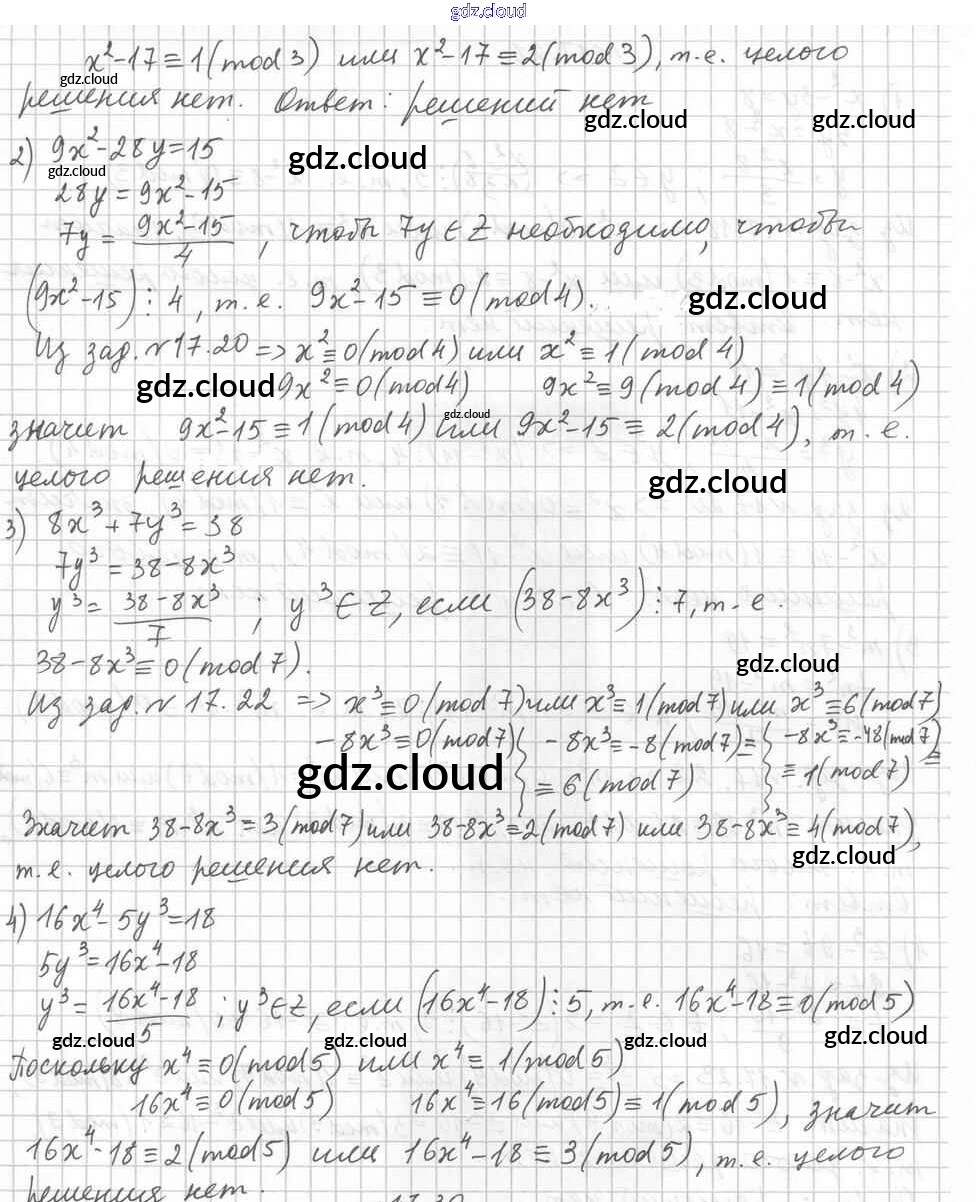 gdz.cloud
x²-17≡1(mod 3) или x²-17≡2(mod 3), т.е. целого
gdz.cloud
решения нет. Ответ: решений нет
gdz.cloud gdz.cloud
2) 9x²-28y=15
gdz.cloud gdz.cloud
28y=9x²-15
7y=(9x²-15)/4, чтобы 7y∈Z необходимо, чтобы
(9x²-15)⋮4, т.е. 9x²-15≡0(mod4).
gdz.cloud
Из зад. №17.20=>x²≡0(mod4) или x²≡1(mod 4)
gdz.cloud 9x²≡0(mod4) 9x²≡9(mod 4)≡1(mod4)
gdz.cloud
значит 9x²-15≡1(mod4) или 9x²-15≡2(mod4), т.е.
целого решения нет.
gdz.cloud
3) 8x³+7y³=38
7y³=38-8x³
y³=(38-8x³)/7; y³∈Z, если (38-8x³)⋮7, т-е.
38-8x³≡0(mod7).
gdz.cloud
Из зад. №17.22 => x³≡0(mod7) или x³≡1(mod7) или x³≡6(mod7)
-8x³≡0(mod7) { -8x³≡-8(mod7)≡ { -8x³≡-48(mod7)≡
gdz.cloud ≡6(mod7) ≡1(mod7)
Значит 38-8x³≡3(mod7) или 38-8x³≡2(mod7) или 38-8x³≡4(mod7),
gdz.cloud
т.е. целого решения нет.
4) 16x⁴-5y³=18
5y³=16x⁴-18
y³=(16x⁴-18)/5; y³∈Z, если (16x⁴-18)⋮5, т.е. 16x⁴-18≡0(mod5)
gdz.cloud gdz.cloud gdz.cloud gdz.cloud
Поскольку x⁴≡0(mod5) или x⁴≡1(mod5)
16x⁴≡0(mod5) 16x⁴≡16(mod5)≡1(mod5), значит
16x⁴-18≡2(mod5) или 16x⁴-18≡3(mod5), т.е. целого
решения нет.